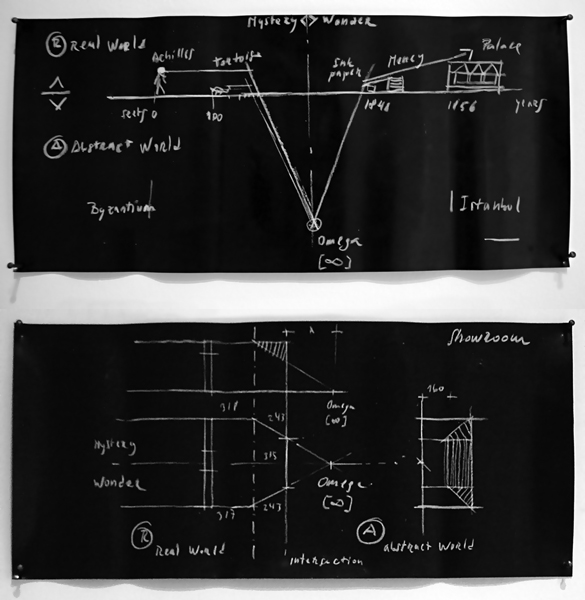 Mystery <> Wonder
R Real World
Achilles
tortoise
Money
Palace
feets 0
100
1848
1856
years
A Abstract World
Byzantium
Istanbul
A
Omega
[∞]
Showroom
h
318
243
Omega
[∞]
160
Mystery
315
Wonder
Omega
[∞]
317
243
R Real World
A
abstract World
intersection